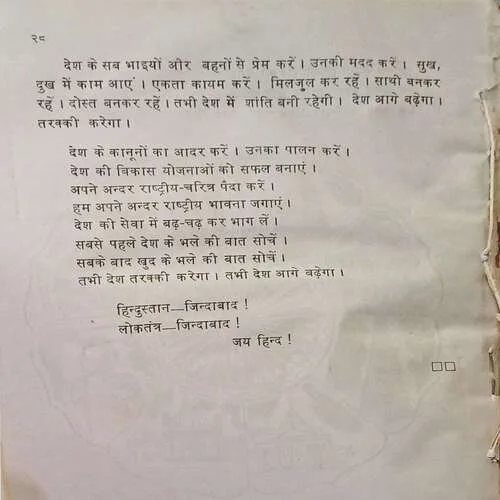 २८
देश के सब भाइयों और बहनों से प्रेम करें । उनकी मदद करें । सुख,
दुख में काम आएं । एकता कायम करें । मिलजुल कर रहें । साथी बनकर
रहें । दोस्त बनकर रहें । तभी देश में शांति बनी रहेगी । देश आगे बढ़ेगा ।
तरक्की करेगा ।
देश के कानूनों का आदर करें । उनका पालन करें ।
देश की विकास योजनाओं को सफल बनाएं ।
अपने अन्दर राष्ट्रीय-चरित्र पैदा करें ।
हम अपने अन्दर राष्ट्रीय भावना जगाएं ।
देश की सेवा में बढ़-चढ़ कर भाग लें ।
सबसे पहले देश के भले की बात सोचें ।
सबके बाद खुद के भले की बात सोचें ।
तभी देश तरक्की करेगा । तभी देश आगे बढ़ेगा ।
हिन्दुस्तान—जिन्दाबाद !
लोकतंत्र—जिन्दाबाद !
जय हिन्द !